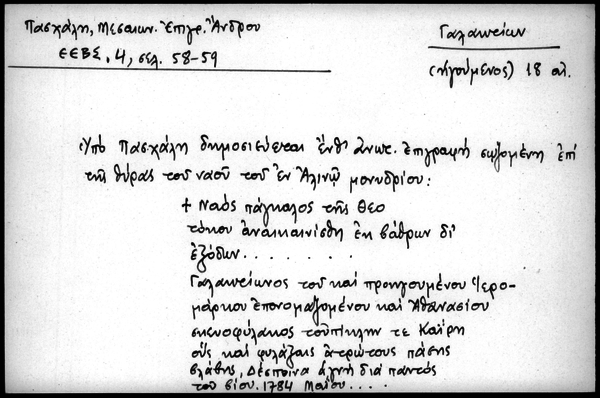 Πασχάλη, Μεσαιων. Ἐπιγρ. Ἄνδρου
ΕΕΒΣ, 4, σελ. 58-59
Γαλακτίων
(ἡγούμενος) 18 αἰ.
Ὑπὸ Πασχάλη δημοσιεύεται ἔνθ' ἀνωτ. ἐπιγραφὴ σῳζομένη ἐπὶ
τῆς θύρας τοῦ ναοῦ τοῦ ἐν Ἀλινῷ μονυδρίου:
+ Ναὸς πάγκαλος τῆς Θεο
τόκου ἀνακαινίσθη ἐκ βάθρων δι'
ἐξόδων. . . . . . .
Γαλακτίωνος τοῦ καὶ προηγουμένου Ἱερο-
μάρκου ἐπονομαζομένου καὶ Ἀθανασίου
σκευοφύλακος τοὐπίκλην τε Καΐρη
οὓς καὶ φυλάξαις ἀτρώτους πάσης
βλάβης, Δέσποινα ἁγνὴ διὰ παντὸς
τοῦ βίου. 1784 Μαΐου . . . .